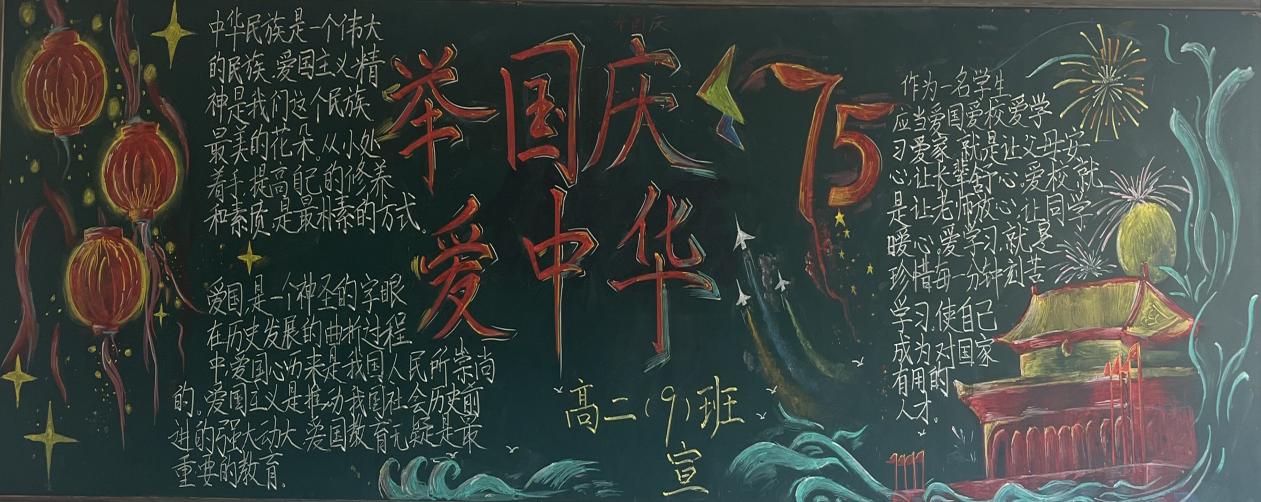 中华民族是一个伟大
的民族、爱国主义精
神是我们这个民族
最美的花朵。从小处
着手、提高自己的修养
和素质、是最朴素的方式。
爱国是一个神圣的字眼
在历史发展的曲折过程
中爱国心历来是我国人民所崇尚
的。爱国主义是推动我国社会历史前
进的强大动大 爱国教育无疑是最
重要的教育.
举国庆
爱中华
75
高二(9)班
宣
作为一名学生
应当爱国爱校爱学
习爱家、就是让父母安
心、让长辈舒心、爱校、就
是让老师放心、让同学
暖心、爱学习、就是
珍惜每一分钟刻苦
学习、使自己
成为对国家
有用的
人才.